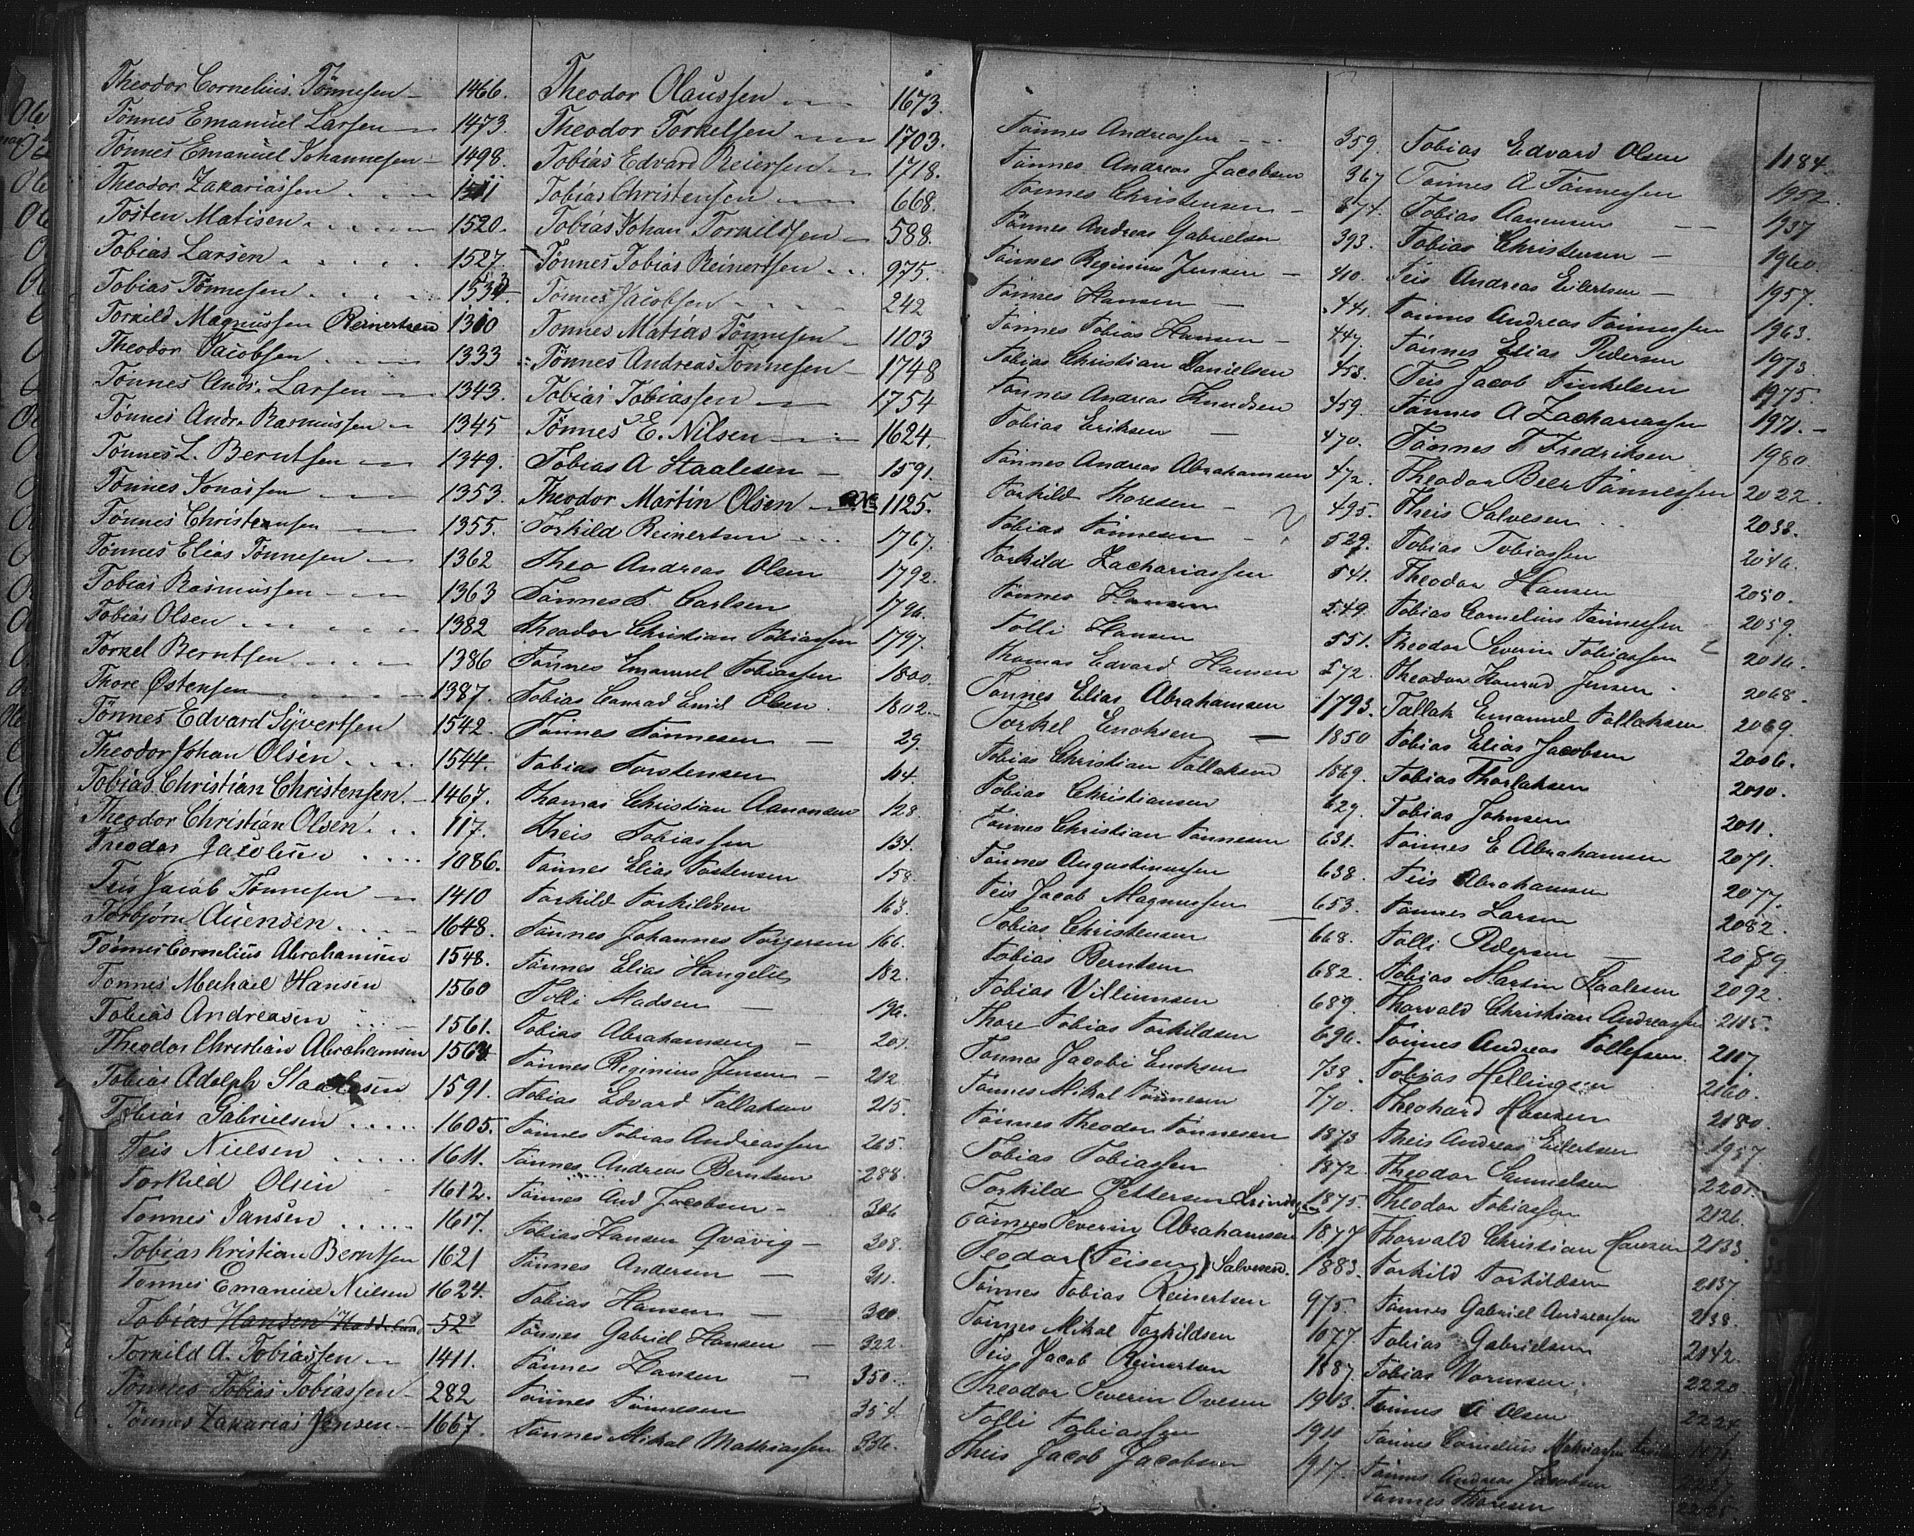 Theodor Cornelius Tønnesen 1466.
Tønnes Emanuel Larsen 1473.
Tønnes Emanuel Johannesen 1498.
Theodor Zakariassen 1511
Tosten Matisen 1520.
Tobias Larsen 1527.
Tobias Tønnesen
Torkild Magnussen Reinertsen 1310
Theodor Jacobsen 1333
Tønnes Andr. Larsen 1343.
Tønnes Andr. Rasmussen 1345
Tønnes L. Berntsen 1349.
Tønnes Jonassen 1353.
Tønnes Christensen 1355.
Tønnes Elias Tønnesen 1362
Tobias Rasmussen 1363
Tobias Olsen 1382
Torkel Berntsen 1386
Thore Østensen 1387.
Tønnes Edvard Syvertsen 1542.
Theodor Johan Olsen 1544.
Tobias Christian Christensen 1467.
Theodor Christian Olsen 117.
Theodor Jacobsen 1086.
Teis Jacob Tønnesen 1410
Torbjørn Auensen 1648.
Tønnes Cornelius Abrahamsen 1548.
Tonnes Mechael Hansen 1560
Tobias Andreasen 1561.
Theodor Christian Abrahamsen
Tobias Adolph Staalesen 1591.
Tobias Gabrielsen 1605.
Teis Nielsen 1611.
Torkild Olsen 1612.
Tonnes Jansen 1617.
Tobias Kristian Berntsen 1621
Tonnes Emanuel Nielsen 1624.
Tobias Hansen 52
Torkild A. Tobiassen 1411.
Tønnes Tobias Tobiassen 282
Tønnes Zakarias Jensen 1667.
Theodor Olaussen 1673.
Theodor Torkelsen 1703.
Tobias Edvard Reiersen 1718.
Tobias Christensen 668.
Tobias Johan Torkildsen 588.
Tønnes Tobias Reinertsen 975.
Tønnes Jacobsen 242
Tonnes Matias Tønnesen 1103
Tønnes Andreas Tonnesen 1748
Tobias Tobiassen 1754
Tønnes E. Nilsen 1624.
Tobias A Staalesen 1591.
Theodor Martin Olsen 1125.
Torkild Reinertsen 1767.
Theo Andreas Olsen 1792.
Tønnes T. Carlsen 1796.
Theodor Christian Tobiassen 1797.
Tønnes Emanuel Tobiassen 1800.
Tobias Conrad Emil Olsen 1802.
Tønnes Tønnesen 29.
Tobias Torstensen 104.
Thomas Christian Aanonsen 128.
Theis Tobiassen 134.
Tønnes Elias Tostensen 158.
Torkild Torkildsen 163.
Tønnes Johannes Torgersen 166.
Tønnes Elias Stangelid 182.
Tolli Madsen 196.
Tobias Abrahamsen 201.
Tønnes Reginius Jensen 212.
Tobias Edvard Tallaksen 215.
Tønnes Tobias Andreassen 265.
Tønnes Andreas Berntsen 288.
Tønnes And Jacobsen 306.
Tobias Hansen Qvavig 308.
Tønnes Andersen 311.
Tobias Hansen 320.
Tønnes Gabriel Hansen 322.
Tønnes Hansen 350.
Tønnes Tønnesen 354.
Tønnes Mikal Mathiassen 356.
Tønnes Andreassen 359.
Tønnes Andreas Jacobsen 367
Tønnes Christensen 374.
Tønnes Andreas Gabrielsen 393.
Tønnes Reginius Jensen 410.
Tønnes Hansen 441.
Tønnes Tobias Hansen 447.
Tobias Christian Danielsen 453.
Tønnes Andreas Knudsen 459.
Tobias Eriksen 470.
Tønnes Andreas Abrahamsen 472.
Torkild Thoresen 495.
Tobias Tønnesen 529.
Torkild Zachariassen 541.
Tønnes Hansen 549.
Tolli Hansen 551.
Thomas Edvard Hansen 572.
Tønnes Elias Abrahamsen 1793.
Torkel Enoksen 1850
Tobias Christian Tallaksen 1869.
Tobias Christiansen 629.
Tønnes Christian Tønnesen 631.
Tønnes Augustinussen 638.
Teis Jacob Magnussen 653.
Tobias Christensen 668.
Tobias Berntsen 682.
Tobias Villumsen 689.
Thore Tobias Torkildsen 696.
Tønnes Jacobi Enoksen 738.
Tønnes Mikal Tønnesen 770.
Tønnes Theodor Tønnesen 1873
Tobias Tobiassen 1872.
Torkild Pettersen 1875.
Tønnes Severin Abrahamsen 1877
Teodor (Teisen) Salvesen. 1883.
Tønnes Tobias Reinertsen 975.
Tønnes Mikal Torkildsen 1077
Teis Jacob Reinertsen 1887.
Theodor Severin Ovesen 1903.
Tolli Tobiassen 1911
Theis Jacob Jacobsen 1917.
Tobias Edvard Olsen 1184.
Tønnes A Tønnessen 1952.
Tobias Aanensen 1937
Tobias Christensen 1960.
Teis Andreas Eilertsen 1957.
Tønnes Andreas Tønnessen 1963.
Tønnes Elias Pedersen 1973.
Teis Jacob Terkelsen 1975.
Tønnes A Zachariassen 1971.
Tønnes T Fredriksen 1980.
Theodor Beer Tønnessen 2022.
Theis Salvesen 2038.
Tobias Tobiassen 2046.
Theodor Hansen 2050.
Tobias Cornelius Tønnessen 2059.
Theodor Severin Tobiassen 2016.
Theodor Konrad Jensen 2068.
Tallak Emanuel Tallaksen 2069.
Tobias Elias Jacobsen 2006.
Tobias Thorlaksen 2010.
Tobias Johnsen 2011.
Tønnes E Abrahamsen 2071.
Teis Abrahamsen 2077.
Tønnes Larsen 2082.
Tolli Pedersen 2089
Tobias Martin Staalesen 2092.
Thorvald Christian Andreassen 2115.
Tønnes Andreas Tollefsen. 2117.
Tobias Hellingsen 2160.
Theohard Hansen 2180.
Theis Andreas Eilertsen 1957
Theodor Samuelsen 2201.
Theodor Tobiassen 2126.
Thorvald Christian Hansen 2133.
Torkild Torkildsen 2137.
Tønnes Gabriel Andreassen 2138.
Tobias Gabrielsen 2142.
Tobias Vormsen 2220
Tønnes A Olsen 2224.
Tønnes Cornelius Mathiassen
Tønnes Andreas Jacobsen 2227
Tønnes Thoresen 2225